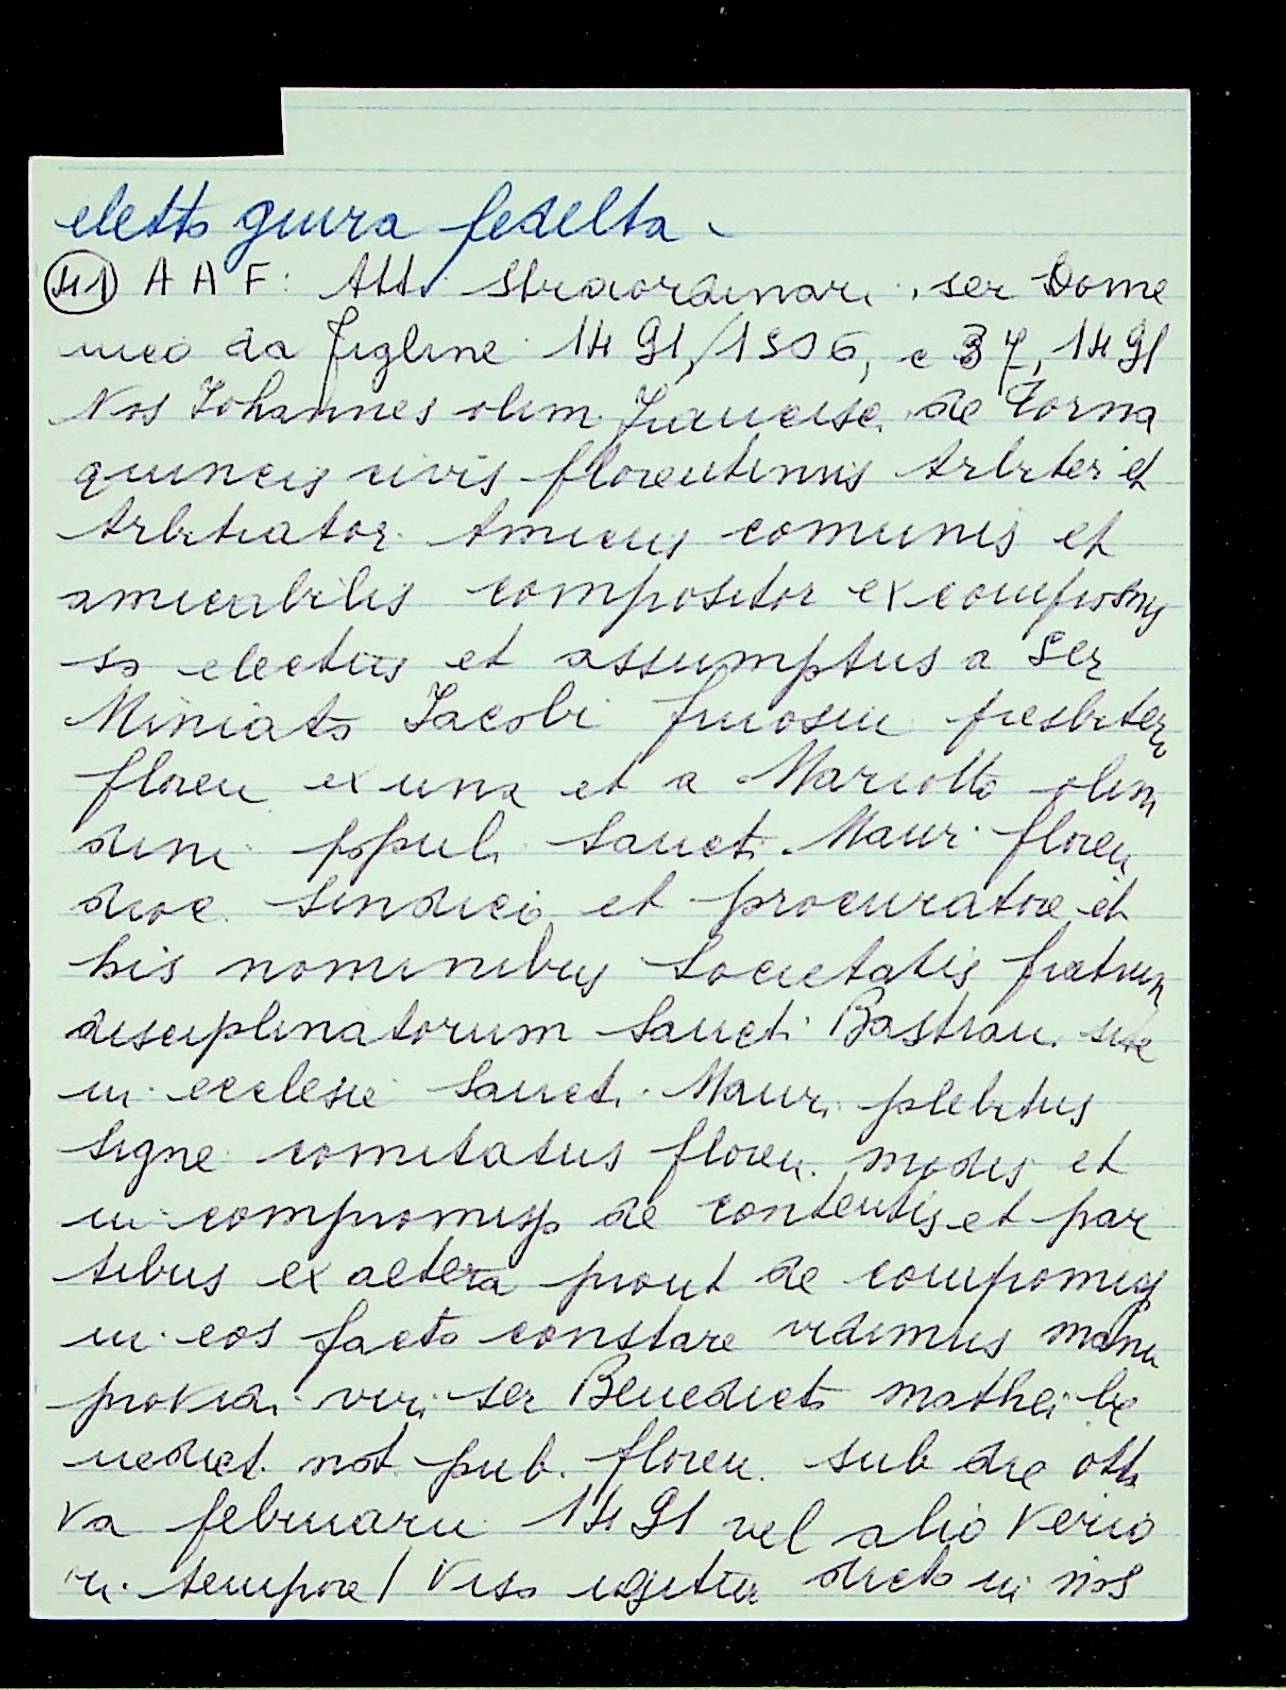 eletto giura fedelta
41 A A F: Atti straordinari, ser Dome
nico da Figline 1491/1506, c 37, 1491
Nos Johannes olim Francisc. de Torna
quincis civis florentinus Arbiter et
Arbitrator Amicus comunis et
amicabilis compositor ex compromis
so electus et assumptus a Ser
Miniato Jacobi presbiter
floren ex una et a Mariotto olim
dini populi Sancti Mauri floren
dioc. Sindico et procuratore et
his nominibus Societatis fratrum
disciplinatorum Sancti Bastiani site
in ecclesie Sancti Mauri plebitus
Signe comitatus floren. modis et
in compromisso de contentis et par
tibus ex altera prout de compromiss
in eos facto constare vidimus manu
providi viri ser Benedicto mathei be
nedict. not. pub. floren. sub die otta
va februarii 1491 vel alio verio
ri tempore / Viso igitur dicto in nos